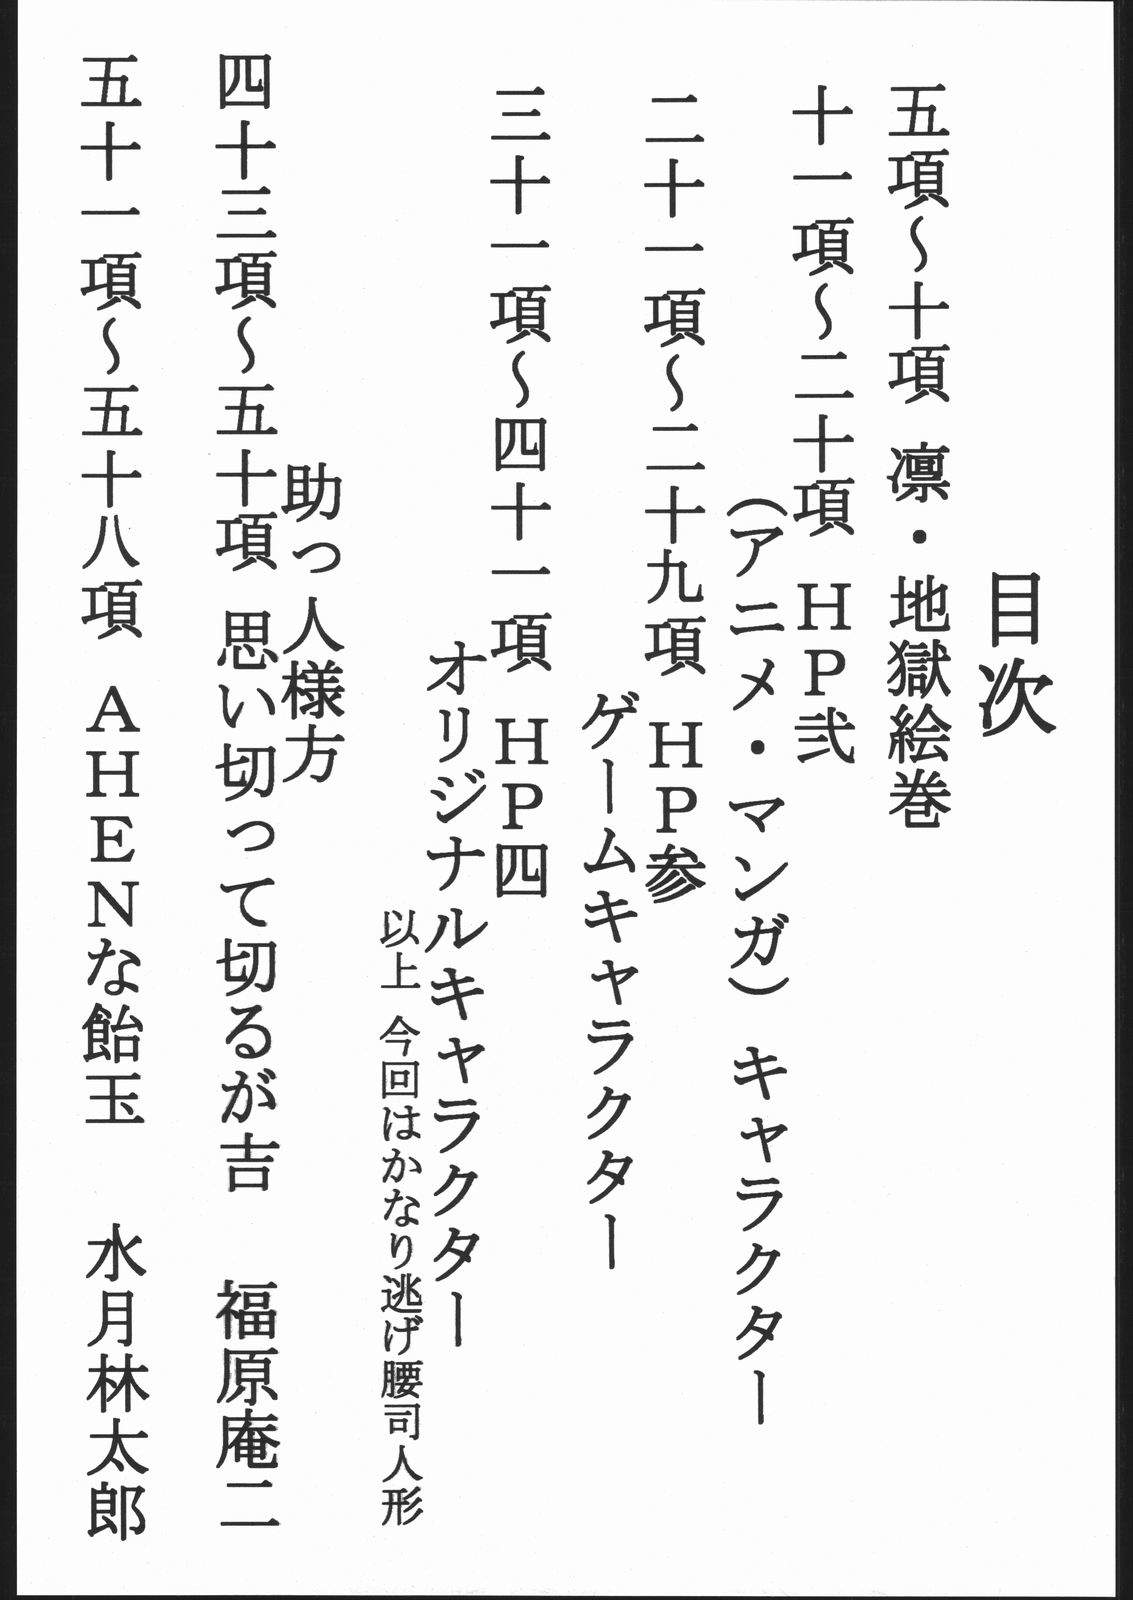 目次
五項～十項 凛・地獄絵巻
十一項～二十項 HP弐
(アニメ・マンガ) キャラクター
二十一項～二十九項 HP参
ゲームキャラクター
三十一項～四十一項 HP四
オリジナルキャラクター
以上 今回はかなり逃げ腰司人形
助っ人様方
四十三項～五十項 思い切って切るが吉 福原庵二
五十一項～五十八項 AHENな飴玉 水月林太郎